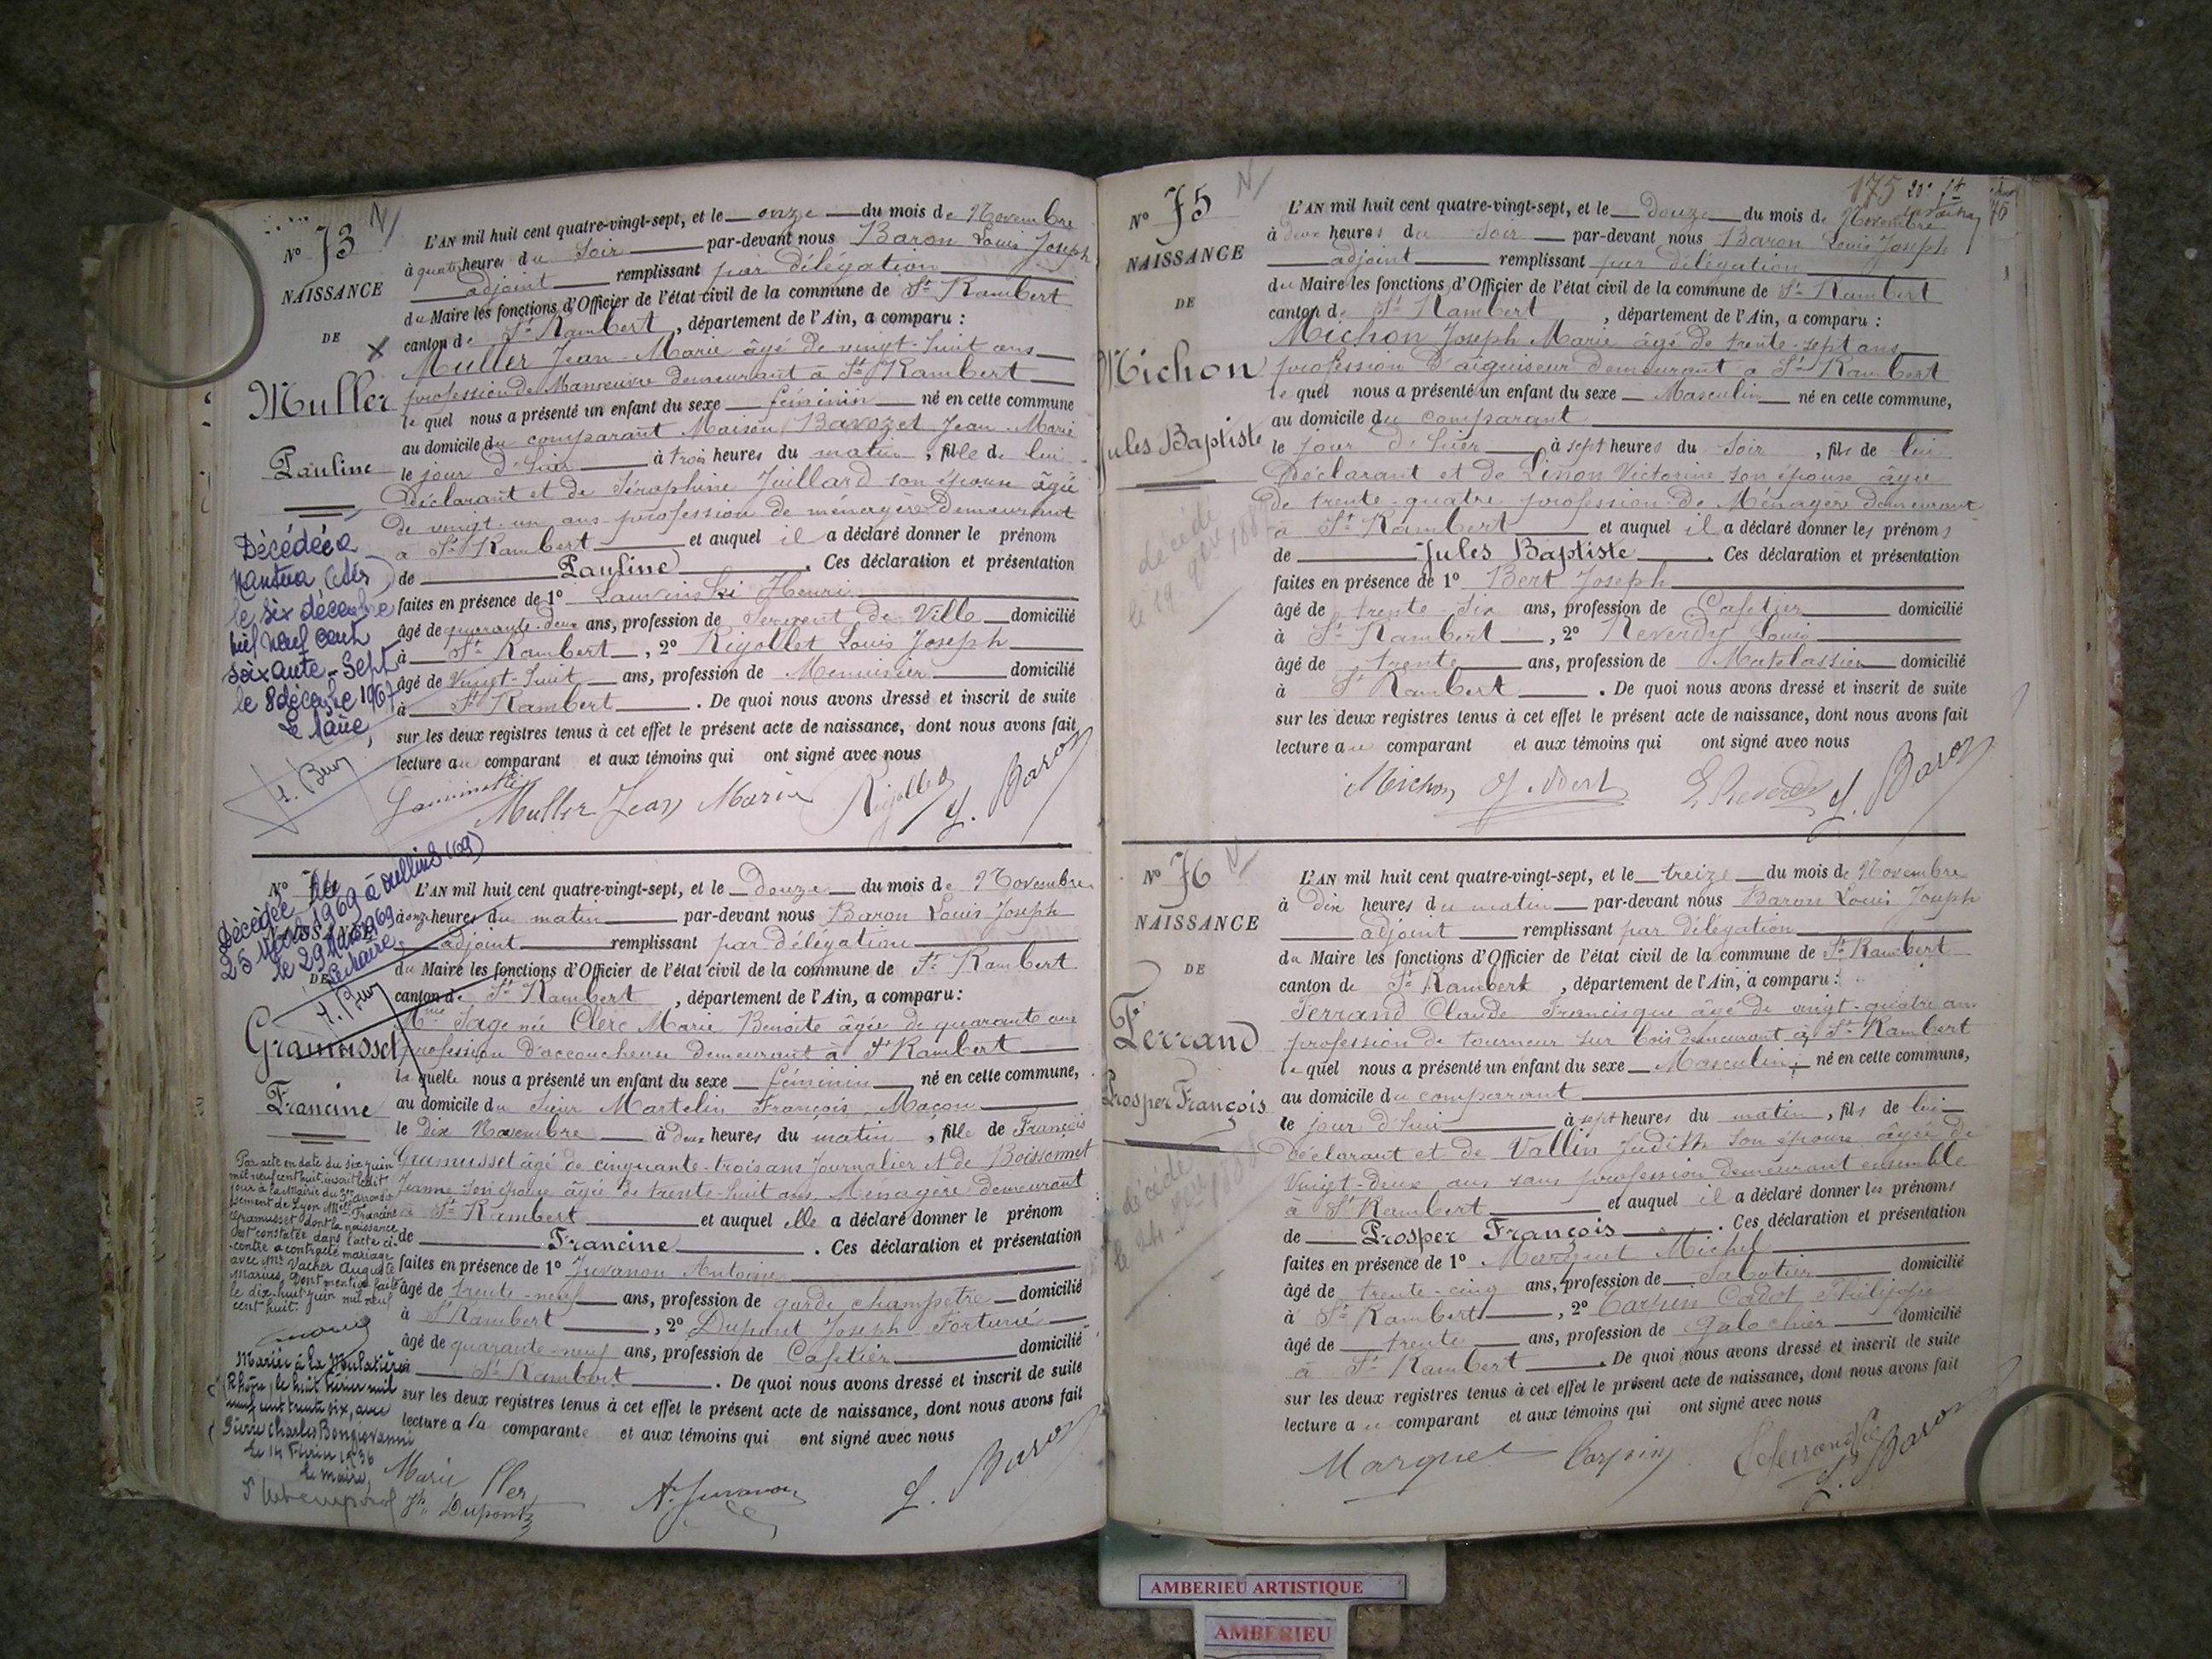 N° 73
NAISSANCE
DE
Muller
Pauline
Décédée à
Nantua (Ain)
le six décembre
mil neuf cent
soixante-sept
le 8 décembre 1967
Le Maire,
L'AN mil huit cent quatre-vingt-sept, et le onze du mois de Novembre
à quatre heures du Soir par-devant nous Baron Louis Joseph
adjoint remplissant par délégation
du Maire les fonctions d'Officier de l'état civil de la commune de St Rambert
canton de St Rambert, département de l'Ain, a comparu :
Muller Jean-Marie âgé de vingt-huit ans
profession de Manœuvre demeurant à St Rambert
lequel nous a présenté un enfant du sexe féminin né en cette commune
au domicile du comparant Maison Bavozet Jean-Marie
le jour d'hier à trois heures du matin, fille de lui
Déclarant et de Séraphine Juillard son épouse âgée
de vingt-un ans profession de ménagère demeurant
à St Rambert et auquel il a déclaré donner le prénom
de Pauline. Ces déclaration et présentation
faites en présence de 1° Henri
âgé de quarante-deux ans, profession de Sergent de Ville domicilié
à St Rambert, 2° Rigollet Louis Joseph
âgé de vingt-huit ans, profession de Menuisier domicilié
à St Rambert. De quoi nous avons dressé et inscrit de suite
sur les deux registres tenus à cet effet le présent acte de naissance, dont nous avons fait
lecture au comparant et aux témoins qui ont signé avec nous
Muller Jean Marie Rigollet L. Baron
N° 74
NAISSANCE
DE
Décédée
25 Mars 1969 à Oullins (69)
le 29 Mars 1969
Le Maire
Gramusset
Francine
Par acte en date du six juin
mil neuf cent huit inscrit ledit
jour à la Mairie du 3me arrondis
sement de Lyon Melle Francine
Gramusset dont la naissance
est constatée dans l'acte ci-
contre a contracté mariage
avec Mr Vacher Auguste
Marius, dont mention faite
le dix-huit juin mil neuf
cent huit.
Mariée à la Mulatière
(Rhône) le huit février mil
neuf cent trente six, avec
Pierre Charles Bongiovanni
Le 14 Février 1936
Le Maire,
L'AN mil huit cent quatre-vingt-sept, et le Douze du mois de Novembre
à onze heures du matin par-devant nous Baron Louis Joseph
adjoint remplissant par délégation
du Maire les fonctions d'Officier de l'état civil de la commune de St Rambert
canton de St Rambert, département de l'Ain, a comparu :
Mme Sage née Clerc Marie Benoite âgée de quarante ans
profession d'accoucheuse demeurant à St Rambert
laquelle nous a présenté un enfant du sexe féminin né en cette commune,
au domicile du Sieur Martelin François, Maçon
le dix Novembre à deux heures du matin, fille de François
Gramusset âgé de cinquante-trois ans Journalier et de Boissonnet
Jeanne son épouse âgée de trente-huit ans, Ménagère demeurant
à St Rambert et auquel elle a déclaré donner le prénom
de Francine. Ces déclaration et présentation
faites en présence de 1° Juvanon Antoine
âgé de trente-neuf ans, profession de garde champêtre domicilié
à St Rambert, 2° Dupont Joseph Fortuné
âgé de quarante-neuf ans, profession de Cafetier domicilié
à St Rambert. De quoi nous avons dressé et inscrit de suite
sur les deux registres tenus à cet effet le présent acte de naissance, dont nous avons fait
lecture a la comparante et aux témoins qui ont signé avec nous
Marie Clerc
Jh Dupont A. Juvanon L. Baron
175
N° 75
NAISSANCE
DE
Michon
Jules Baptiste
décédé
L'AN mil huit cent quatre-vingt-sept, et le Douze du mois de Novembre
à deux heures du soir par-devant nous Baron Louis Joseph
adjoint remplissant par délégation
du Maire les fonctions d'Officier de l'état civil de la commune de St Rambert
canton de St Rambert, département de l'Ain, a comparu :
Michon Joseph Marie âgé de trente-sept ans
profession d'aiguiseur demeurant à St Rambert
lequel nous a présenté un enfant du sexe Masculin né en cette commune,
au domicile du comparant
le jour d'hier à sept heures du soir, fils de lui
Déclarant et de Linon Victorine son épouse âgée
de trente-quatre profession de Ménagère demeurant
à St Rambert et auquel il a déclaré donner les prénoms
de Jules Baptiste. Ces déclaration et présentation
faites en présence de 1° Bert Joseph
âgé de trente-six ans, profession de Cafetier domicilié
à St Rambert, 2° Reverdy Louis
âgé de trente ans, profession de Matelassier domicilié
à St Rambert. De quoi nous avons dressé et inscrit de suite
sur les deux registres tenus à cet effet le présent acte de naissance, dont nous avons fait
lecture au comparant et aux témoins qui ont signé avec nous
Michon J. Bert L. Reverdy L. Baron
N° 76
NAISSANCE
DE
Ferrand
Prosper François
décédé
L'AN mil huit cent quatre-vingt-sept, et le treize du mois de Novembre
à dix heures du matin par-devant nous Baron Louis Joseph
adjoint remplissant par délégation
du Maire les fonctions d'Officier de l'état civil de la commune de St Rambert
canton de St Rambert, département de l'Ain, a comparu :
Ferrand Claude Francisque âgé de vingt-quatre ans
profession de tourneur sur bois demeurant à St Rambert
lequel nous a présenté un enfant du sexe Masculin, né en cette commune,
au domicile du comparant
le jour d'hui à sept heures du matin, fils de lui
Déclarant et de Vallin Judith son épouse âgée de
Vingt-deux ans sans profession demeurant ensemble
à St Rambert et auquel il a déclaré donner les prénoms
de Prosper François. Ces déclaration et présentation
faites en présence de 1° Marquet Michel
âgé de trente-cinq ans, profession de Sabotier domicilié
à St Rambert, 2° Carpin Cadet Philippe
âgé de trente ans, profession de galochier domicilié
à St Rambert. De quoi nous avons dressé et inscrit de suite
sur les deux registres tenus à cet effet le présent acte de naissance, dont nous avons fait
lecture au comparant et aux témoins qui ont signé avec nous
Marquet Carpin L. Baron
AMBERIEU ARTISTIQUE
AMBERIEU